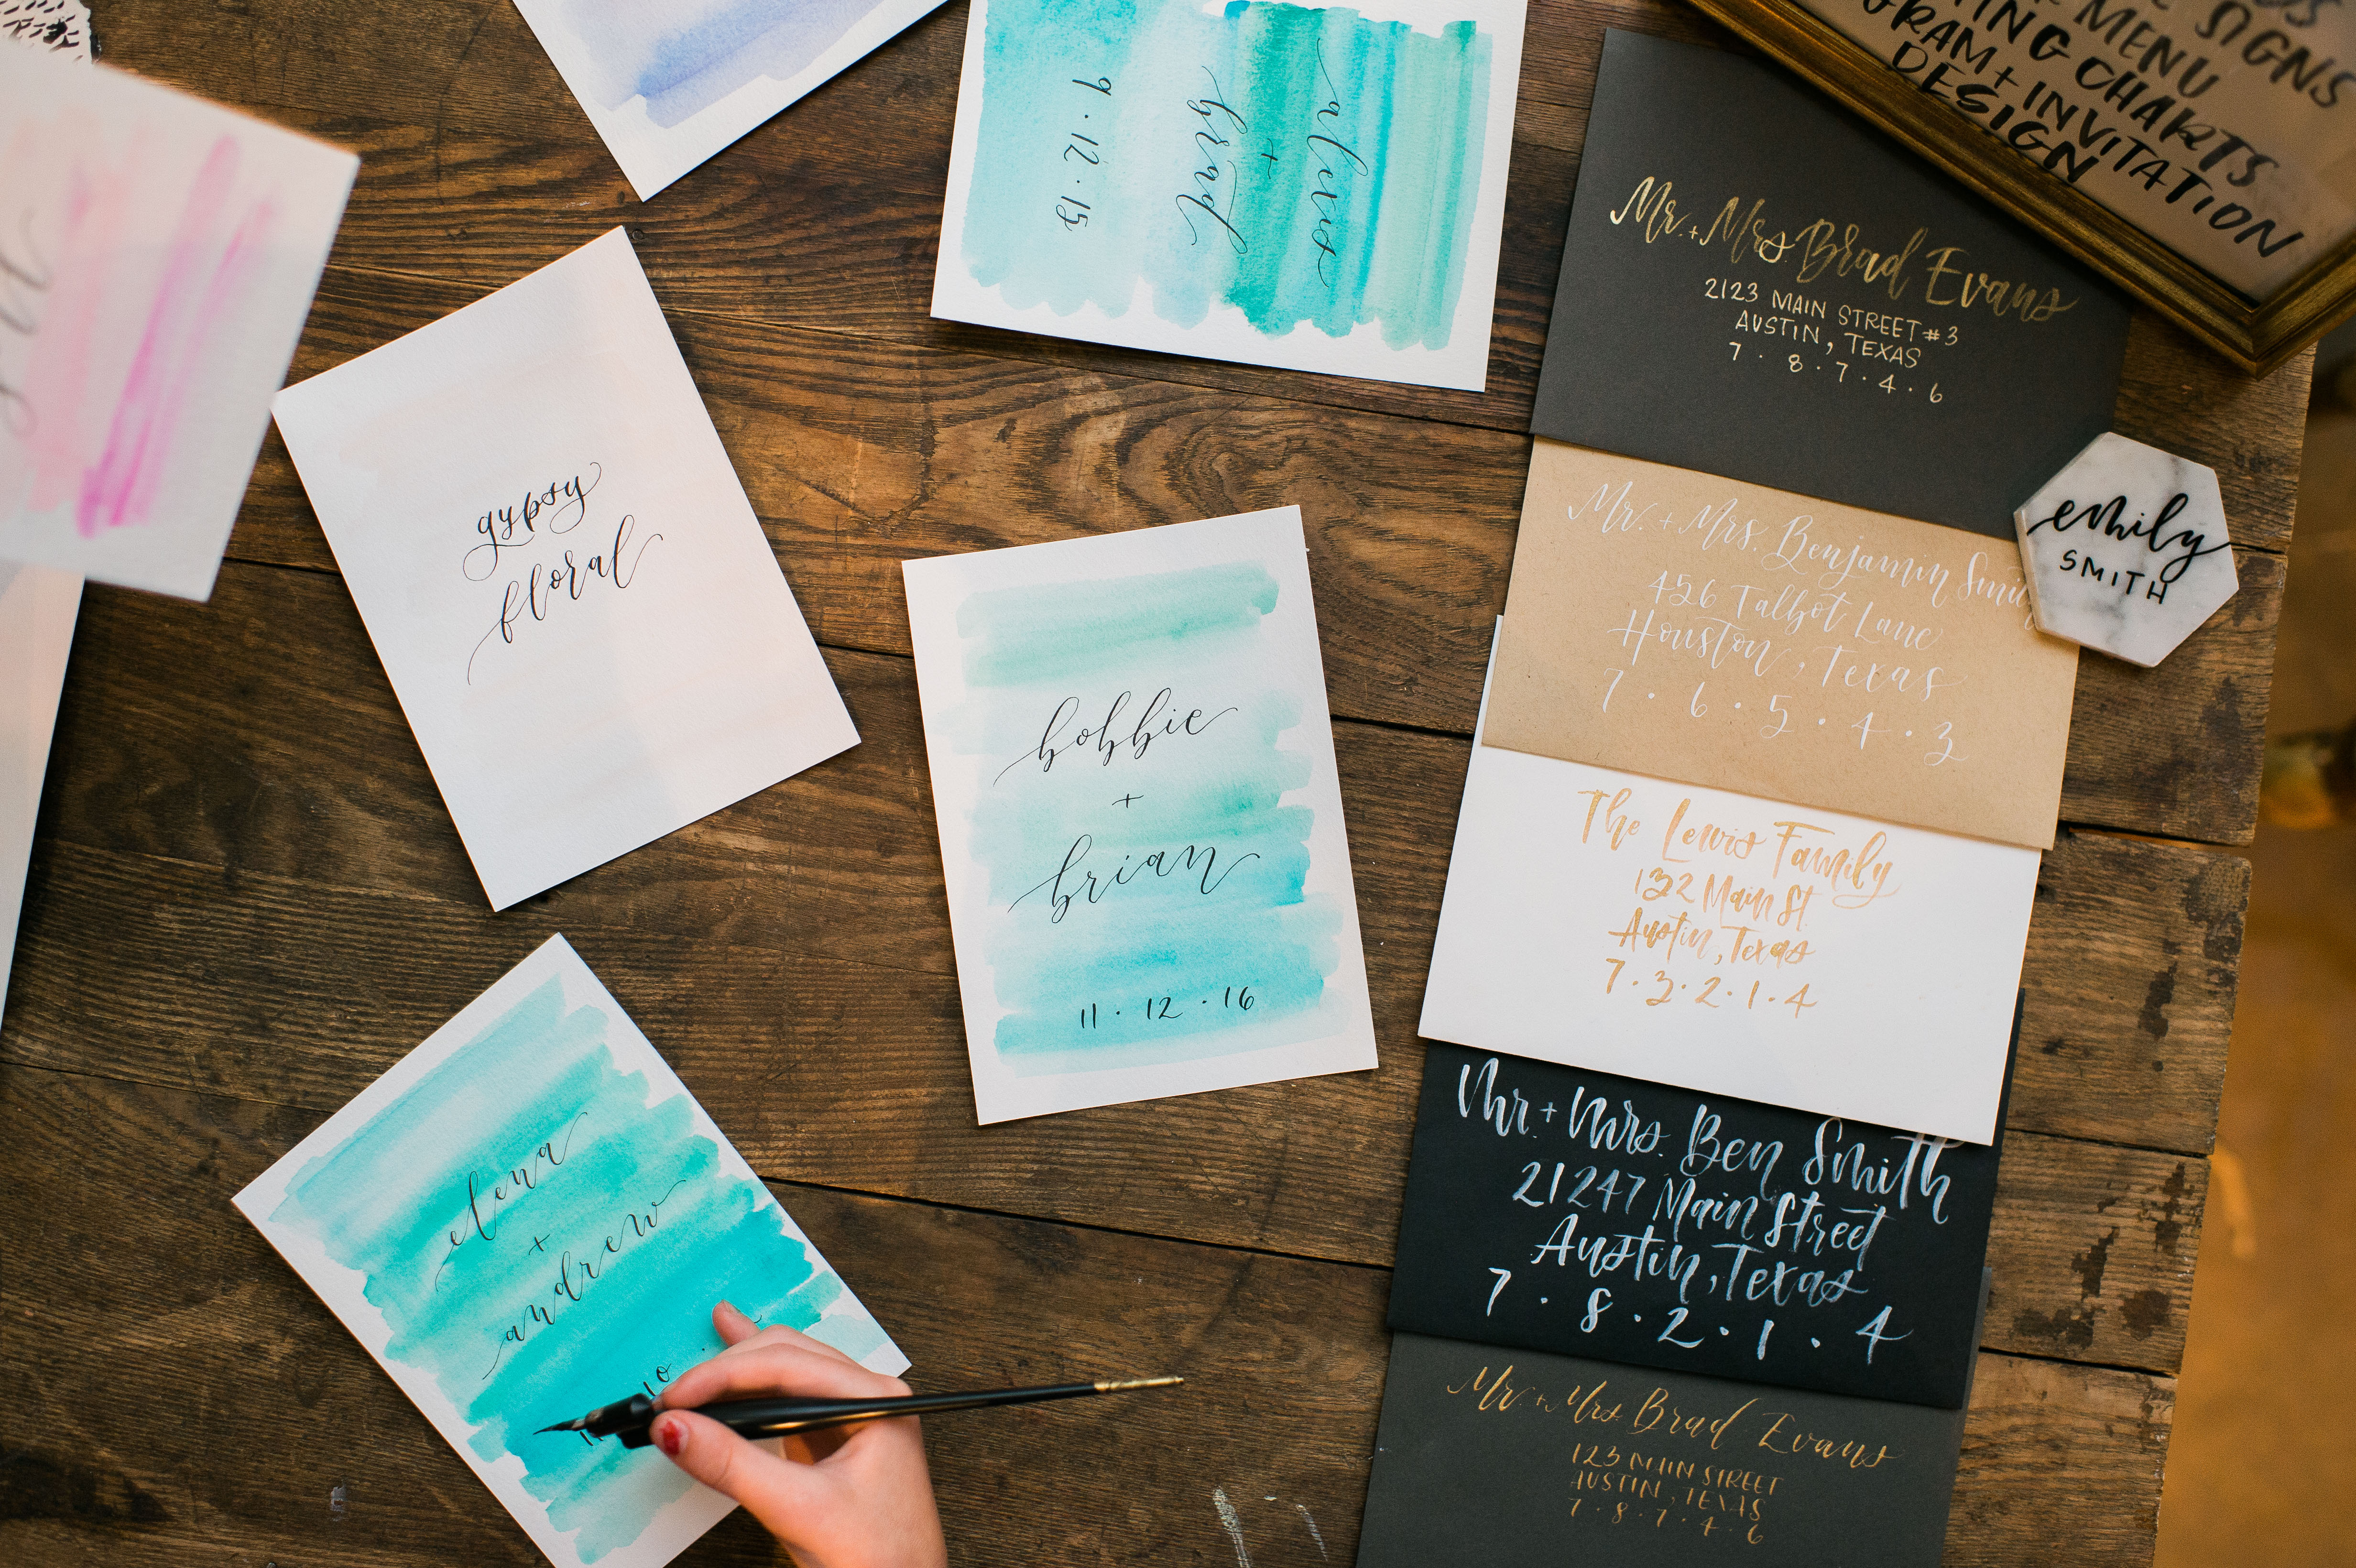 gypsy
floral
9 · 12 · 15
brad
+
bobbie
+
brian
11 · 12 · 16
elena
+
andrew
10 ·
SIGNS
MENU
CHARTS
+ INVITATION
DESIGN
Mr. + Mrs. Brad Evans
2123 MAIN STREET #3
AUSTIN, TEXAS
7 · 8 · 7 · 4 · 6
emily
SMITH
Mr. + Mrs. Benjamin
456 Talbot Lane
Houston, Texas
7 · 6 · 5 · 4 · 3
The Lewis Family
132 Main St.
Austin, Texas
7 · 3 · 2 · 1 · 4
Mr. + Mrs. Ben Smith
21247 Main Street
Austin, Texas
7 · 8 · 2 · 1 · 4
Mr. + Mrs. Brad Evans
123 MAIN STREET
AUSTIN, TEXAS
7 · 8 · 7 · 4 · 6